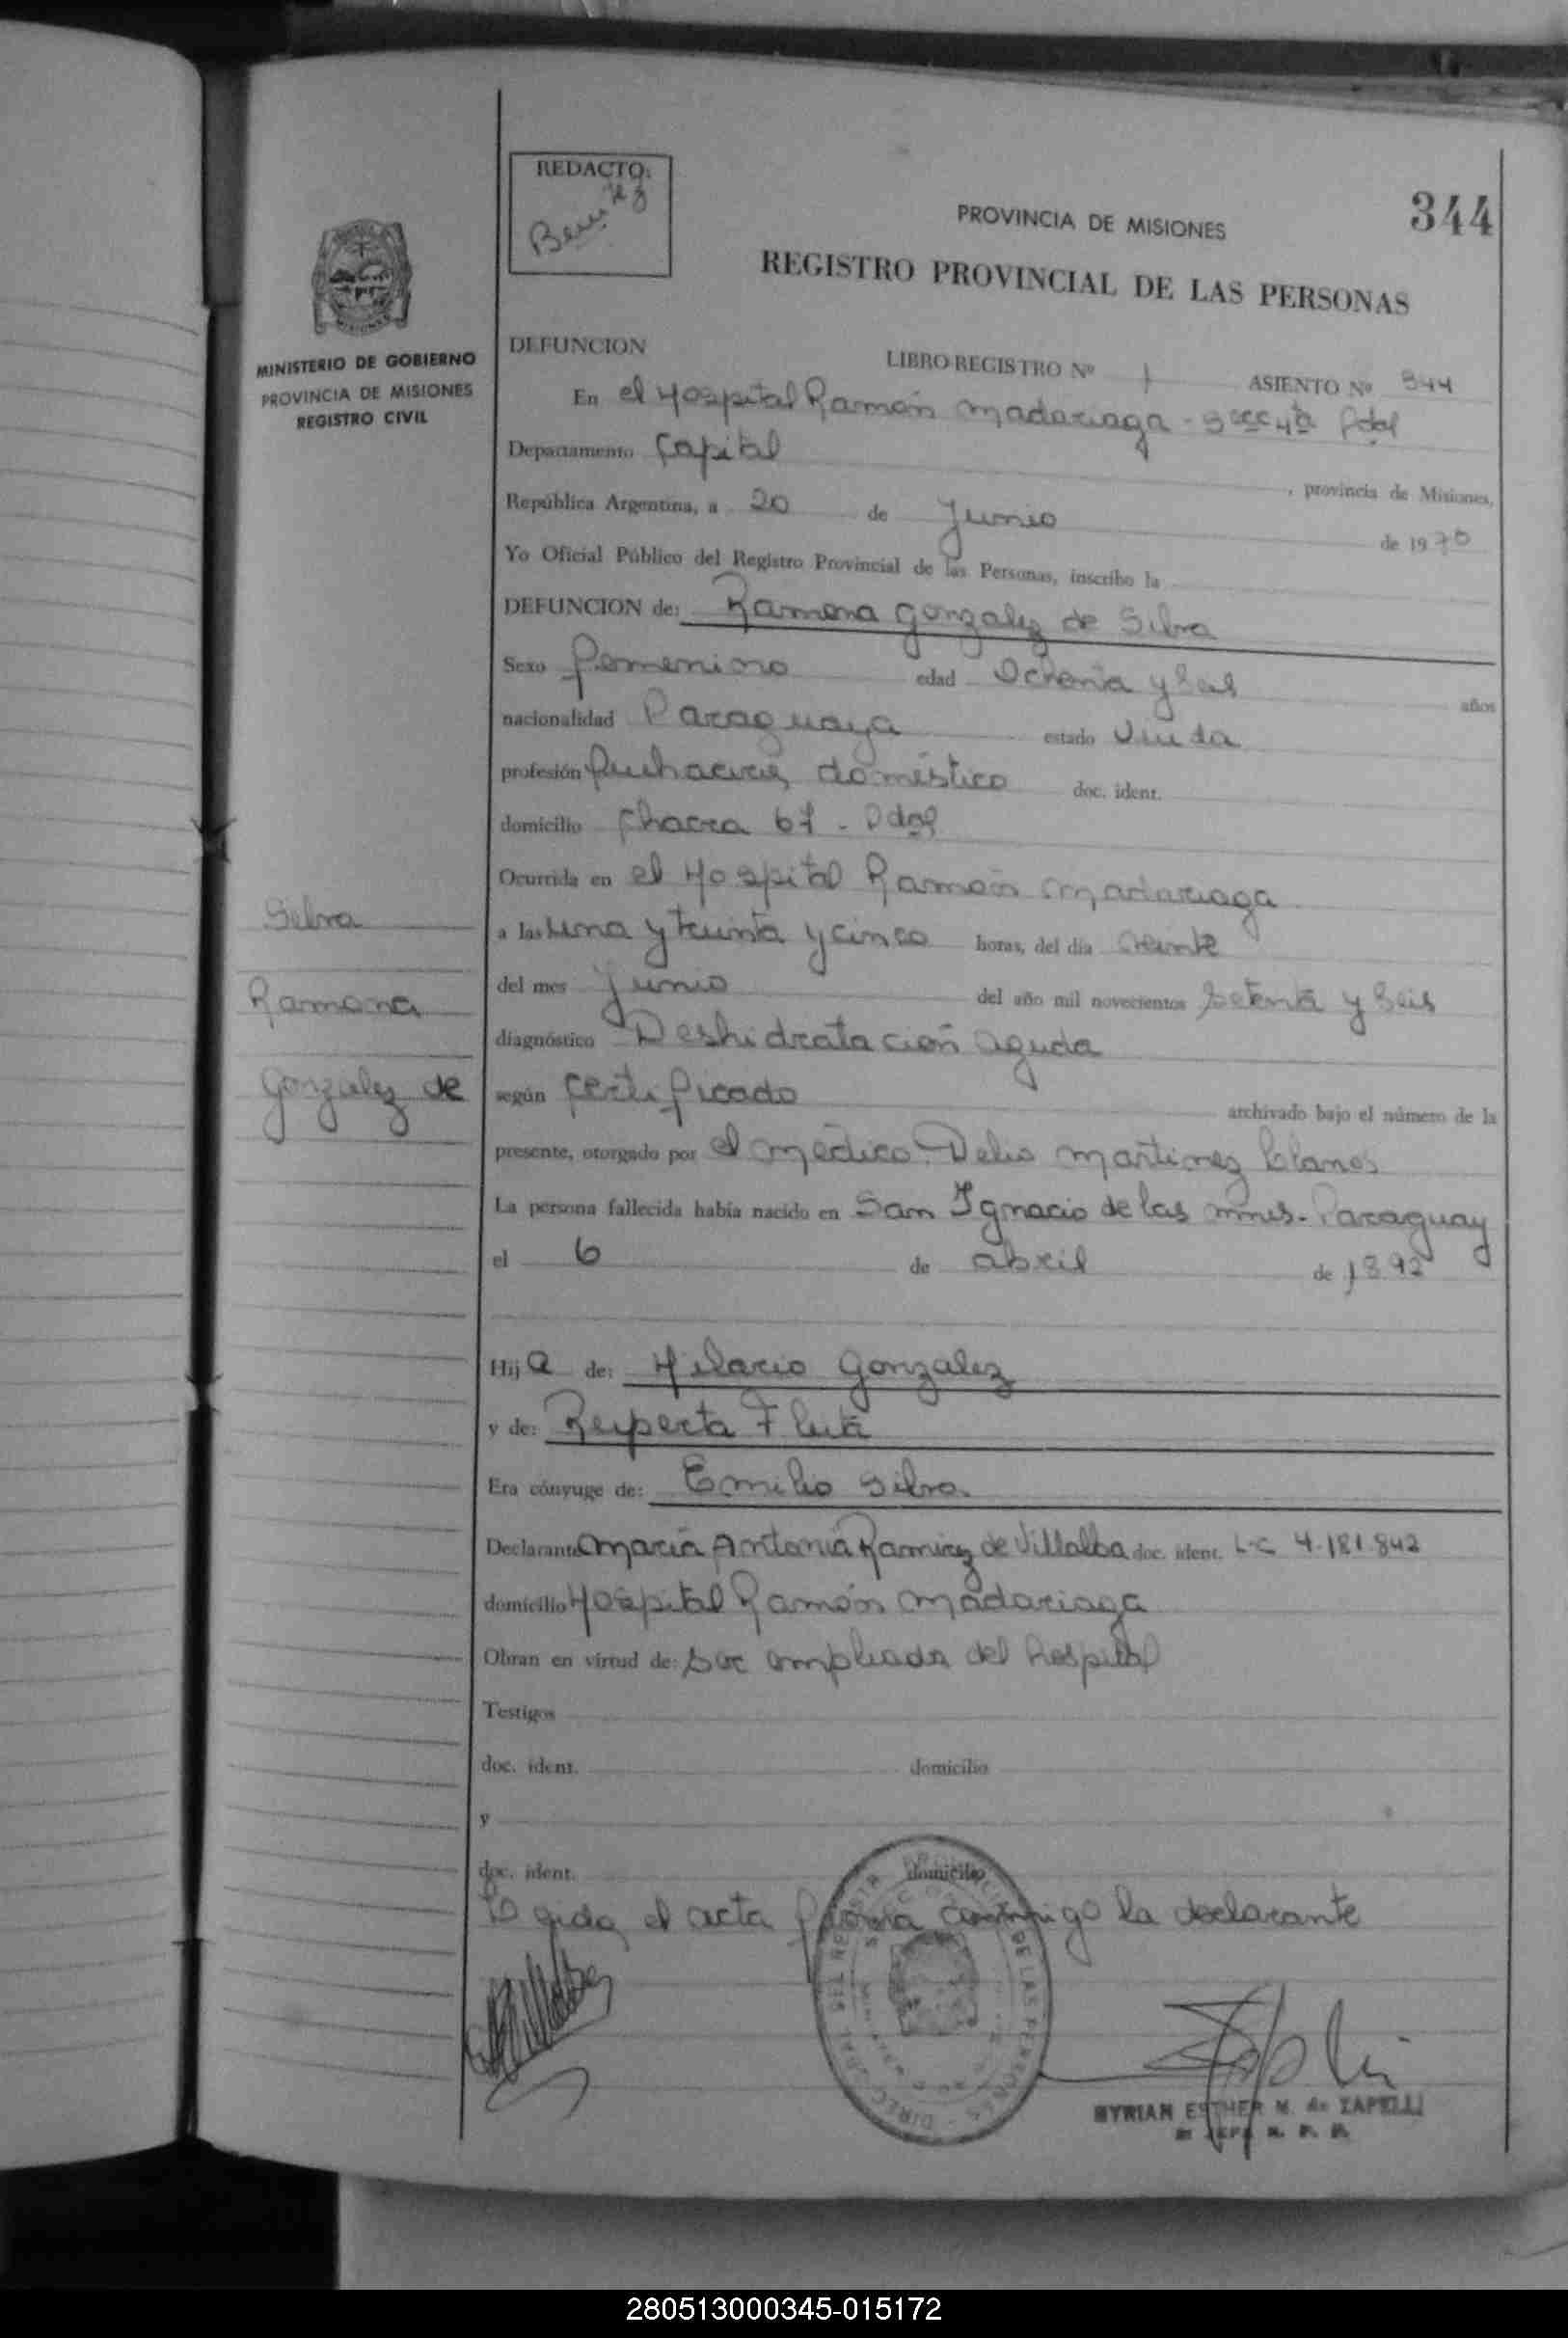 REDACTO:
Benitez
344
PROVINCIA DE MISIONES
REGISTRO PROVINCIAL DE LAS PERSONAS
MINISTERIO DE GOBIERNO
PROVINCIA DE MISIONES
REGISTRO CIVIL
DEFUNCION LIBRO-REGISTRO Nº 1 ASIENTO Nº 344
En el Hospital Ramón Madariaga - Secc 4ta Pdas
Departamento Capital , provincia de Misiones,
República Argentina, a 20 de Junio de 1976
Yo Oficial Público del Registro Provincial de las Personas, inscribo la
DEFUNCION de: Ramona Gonzalez de Silva
Sexo femenino edad Ochenta y años
nacionalidad Paraguaya estado Viuda
profesión Quehaceres doméstico doc. ident.
domicilio Chacra - Pdas
Ocurrida en el Hospital Ramón Madariaga
a las una y treinta y cinco horas, del día veinte
del mes Junio del año mil novecientos setenta y seis
diagnóstico Deshidratación aguda
según certificado archivado bajo el número de la
presente, otorgado por el médico Delio Martinez Llanos
La persona fallecida había nacido en San Ignacio de las mnes. Paraguay
el 6 de abril de 1892
Silva
Ramona
Gonzalez de
Hija de: Hilario Gonzalez
y de:
Era cónyuge de: Emilio Silva
Declarante Maria Antonia Ramirez de Villalba doc. ident. L-C 4.181.842
domicilio Hospital Ramón Madariaga
Obran en virtud de: ser empleada del hospital
Testigos
doc. ident. domicilio
y
doc. ident. domicilio
el acta firma conmigo la declarante
MYRIAN ESTHER M. de ZAPELLI
280513000345-015172